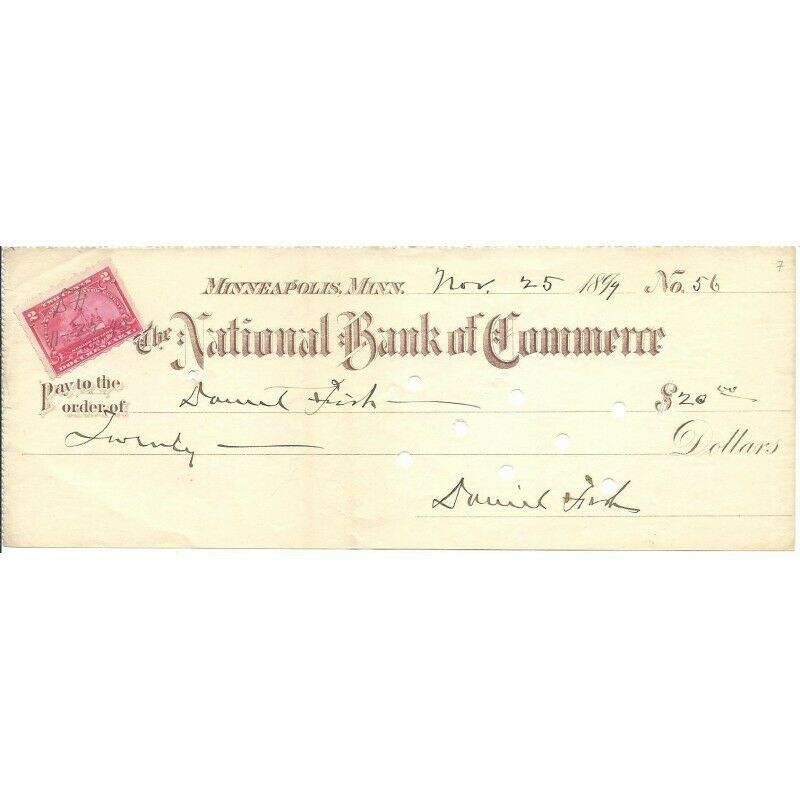 Minneapolis, Minn. Nov. 25 1899 No. 56
7
The National Bank of Commerce
Pay to the order of Daniel Fish $20.00
Twenty Dollars
Daniel Fish
2 2